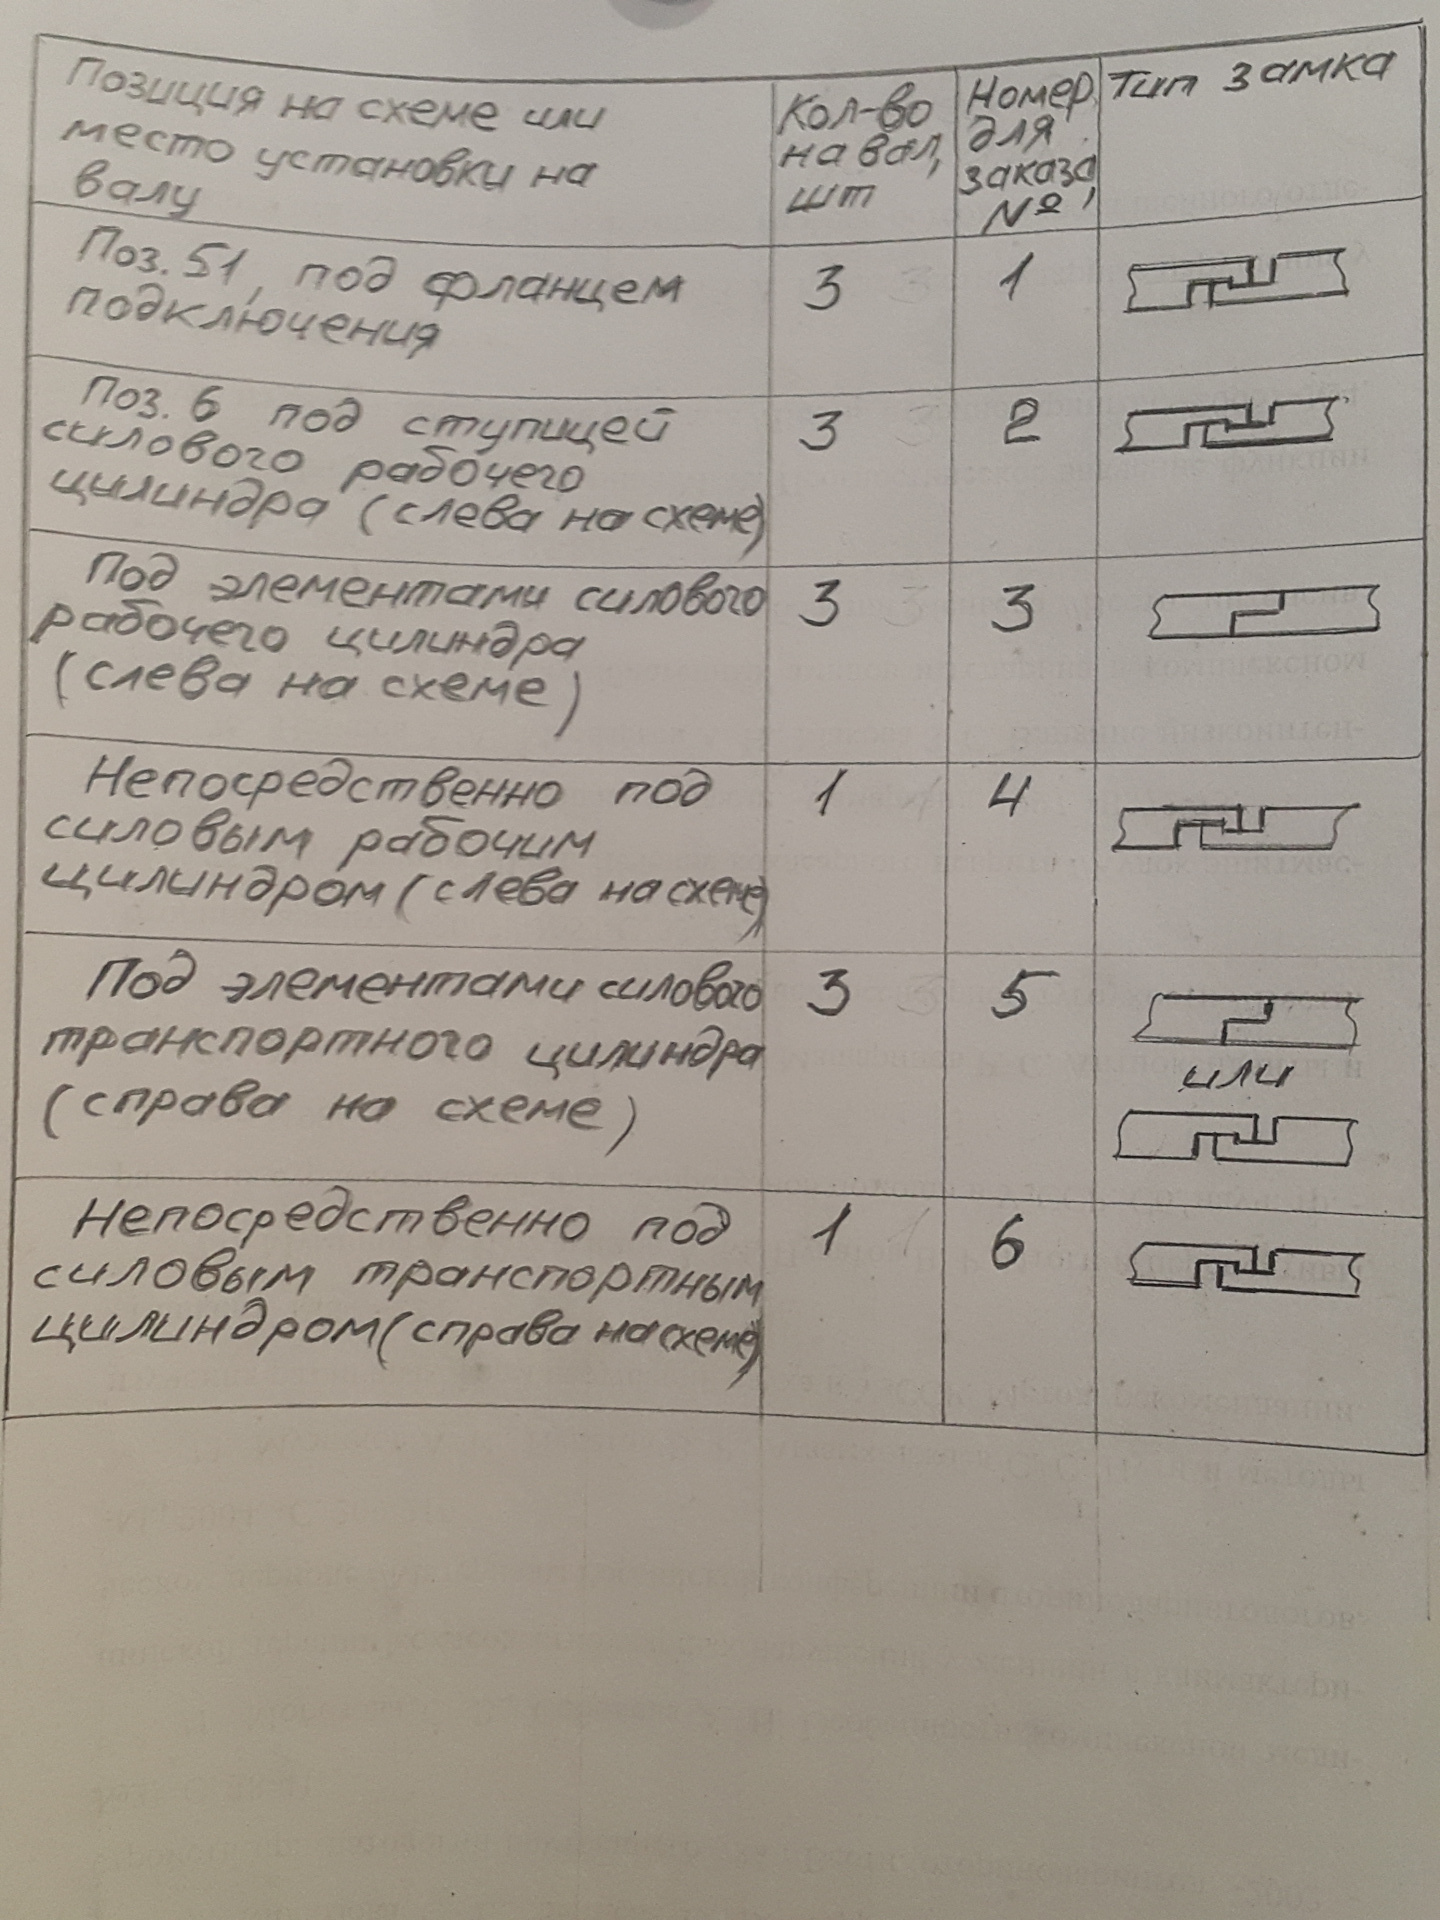 Позиция на схеме или
место установки на
валу
Кол-во
на вал,
шт
Номер
для
заказа,
№
Тип замка
Поз. 51, под фланцем
подключения
3
1
Поз. 6 под ступицей
силового рабочего
цилиндра (слева на схеме)
3
2
Под элементами силового
рабочего цилиндра
(слева на схеме)
3
3
Непосредственно под
силовым рабочим
цилиндром (слева на схеме)
1
4
Под элементами силового
транспортного цилиндра
(справа на схеме)
3
5
или
Непосредственно под
силовым транспортным
цилиндром (справа на схеме)
1
6